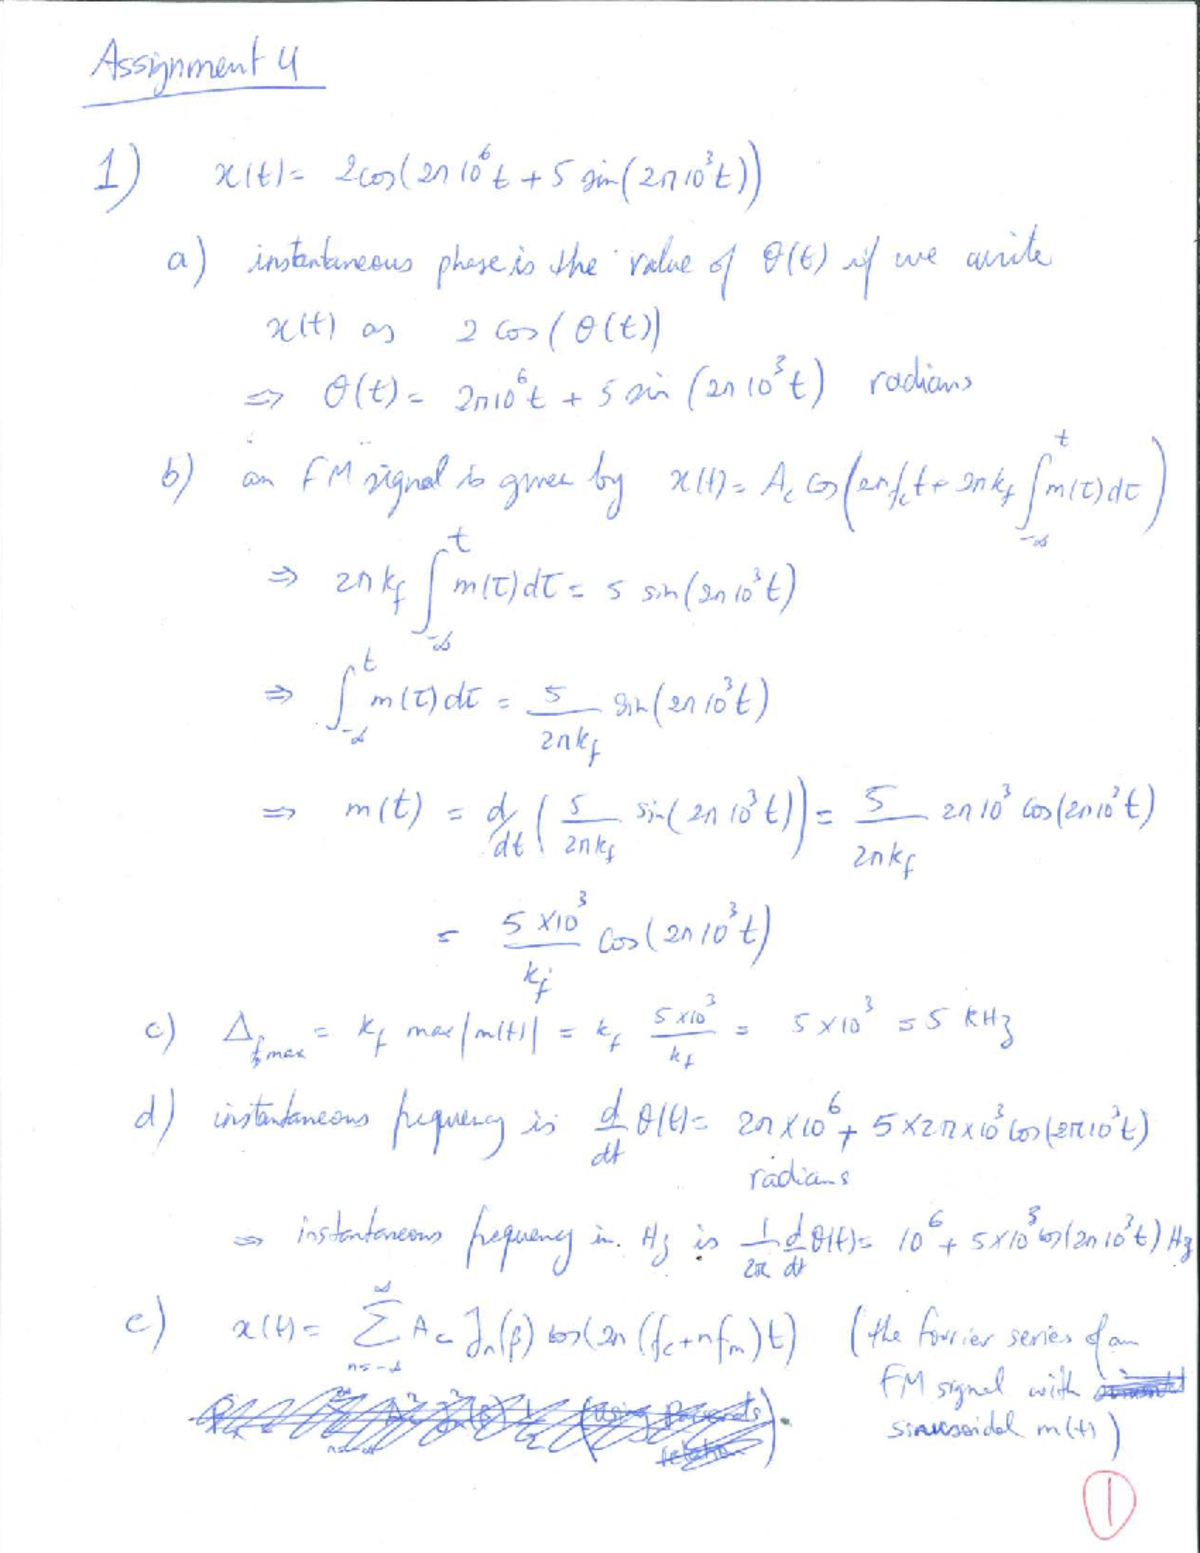 Assignment 4
1) x(t) = 2cos(2π10⁶t + 5 sin(2π10³t))
a) instantaneous phase is the value of θ(t) if we write
x(t) as 2 cos(θ(t))
⇒ θ(t) = 2π10⁶t + 5 sin(2π10³t) radians
b) an FM signal is given by x(t) = A_c cos(2πf_ct + 2πk_f ∫_{-∞}^{t} m(τ)dτ)
⇒ 2πk_f ∫_{-∞}^{t} m(τ)dτ = 5 sin(2π10³t)
⇒ ∫_{-∞}^{t} m(τ)dτ = 5/(2πk_f) sin(2π10³t)
⇒ m(t) = d/dt (5/(2πk_f) sin(2π10³t)) = 5/(2πk_f) 2π10³ cos(2π10³t)
= (5×10³)/k_f cos(2π10³t)
c) Δ_{f max} = k_f max|m(t)| = k_f (5×10³)/k_f = 5×10³ = 5 kHz
d) instantaneous frequency is d/dt θ(t) = 2π×10⁶ + 5×2π×10³ cos(2π10³t)
radians
⇒ instantaneous frequency in Hz is 1/(2π) d/dt θ(t) = 10⁶ + 5×10³ cos(2π10³t) Hz
e) x(t) = ∑_{n=-∞}^{∞} A_c J_n(β) cos(2π(f_c + nf_m)t) (the fourier series of an
FM signal with
sinusoidal m(t))
1